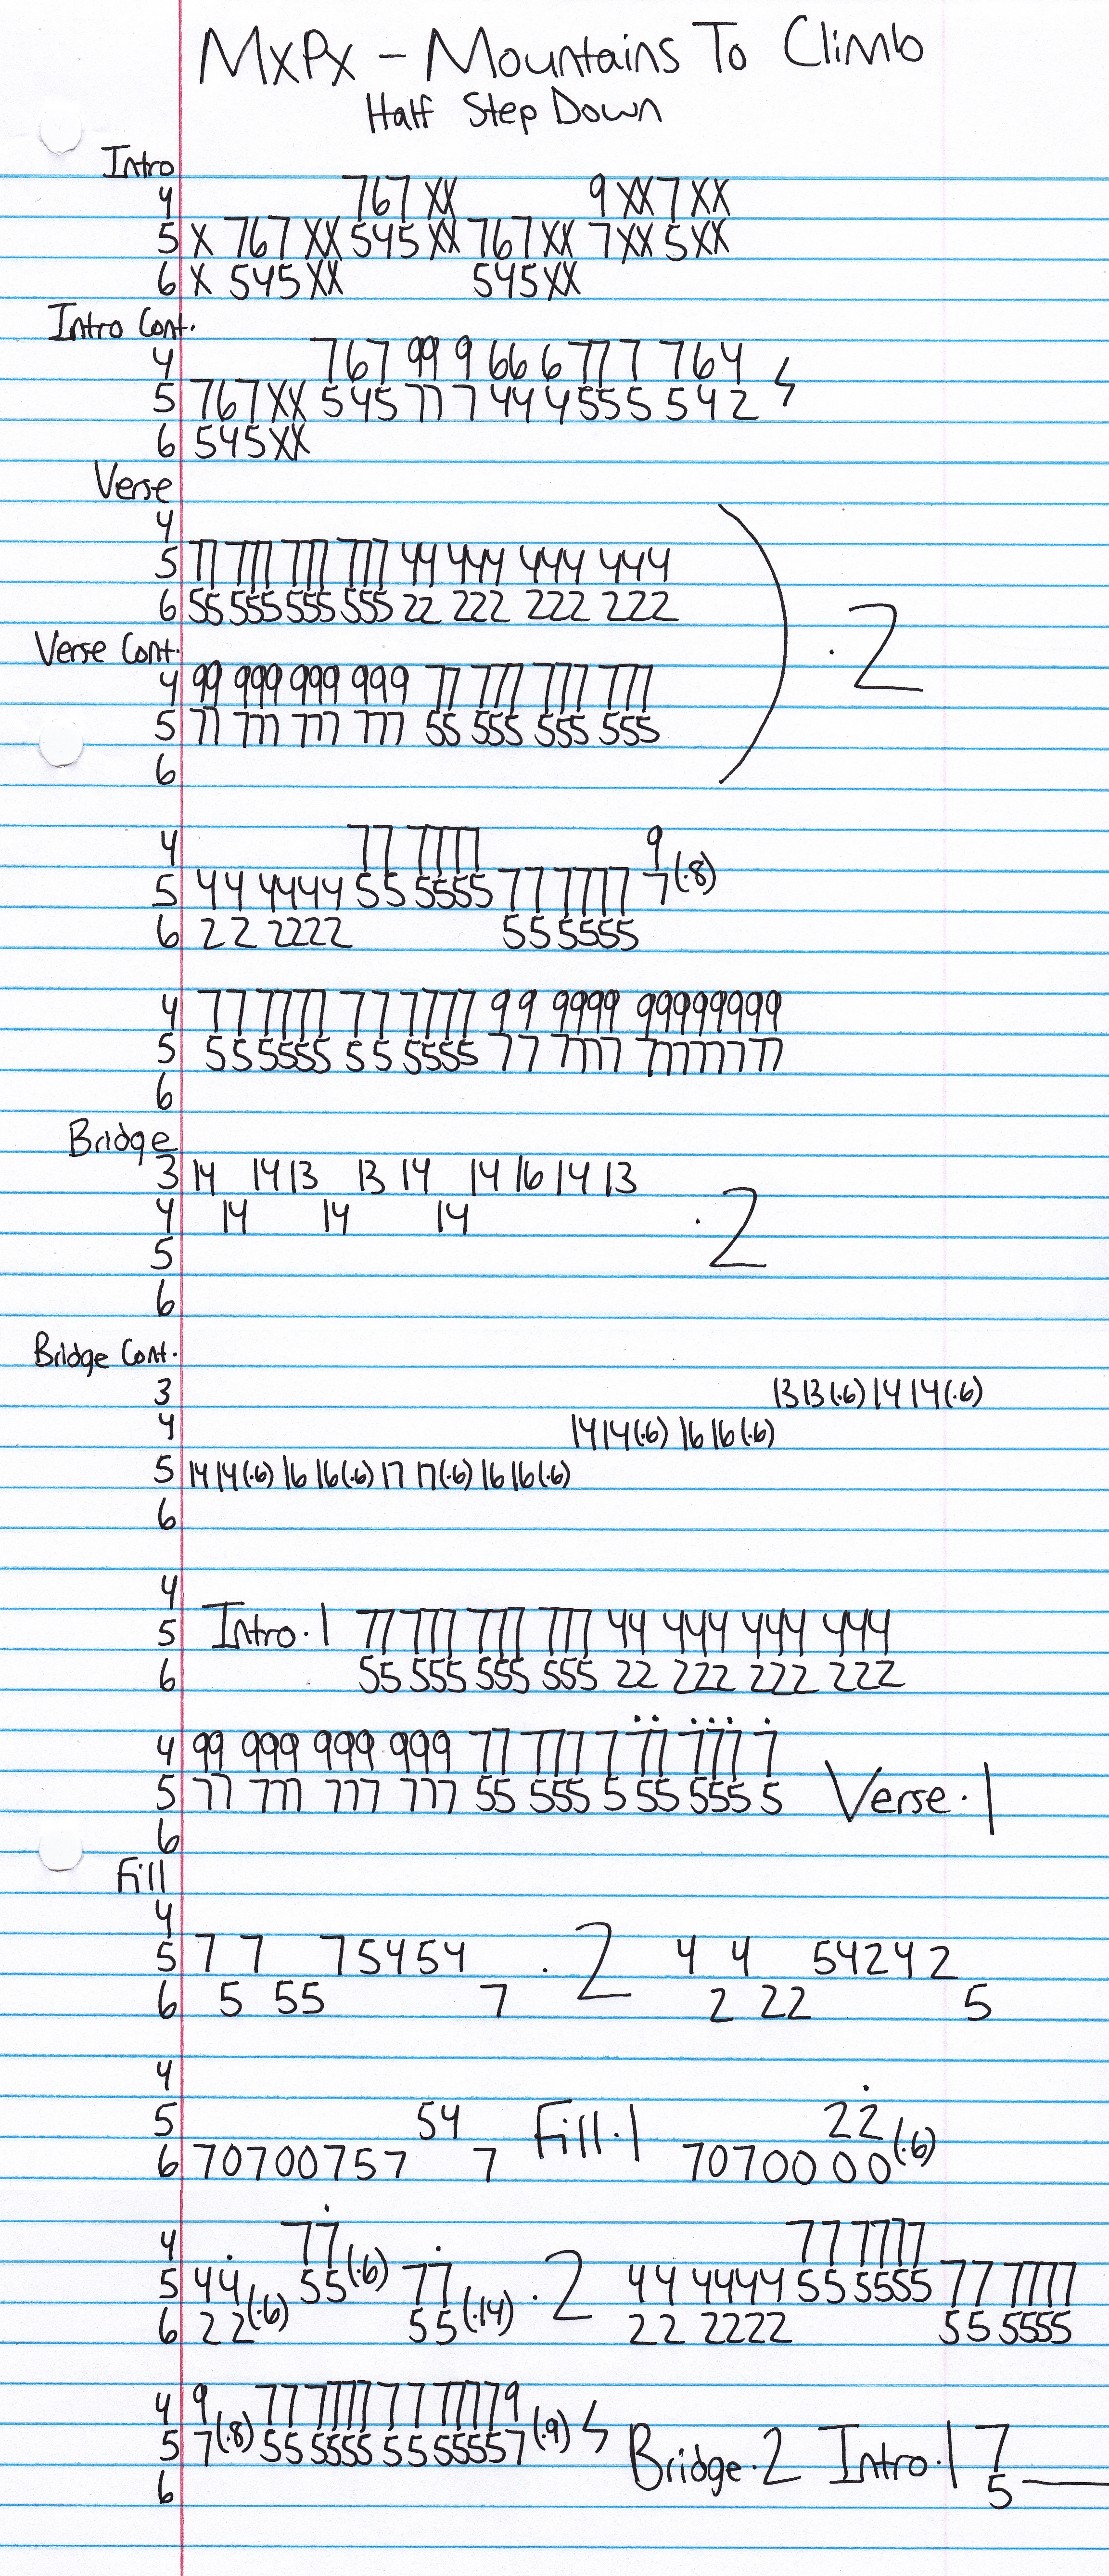 MxPx - Mountains To Climb
Half Step Down
Intro
4 767 XX 9 XX 7 XX
5 X 767 XX 545 XX 767 XX 7 XX 5 XX
6 X 545 XX 545 XX
Intro Cont.
4 767 99 9 66 6 77 7 764
5 767 XX 545 77 7 44 4 55 5 542
6 545 XX
Verse
4
5 77 777 777 777 44 444 444 444
6 55 555 555 555 22 222 222 222
Verse Cont.
4 99 999 999 999 77 777 777 777
5 77 777 777 777 55 555 555 555
6
·2
4 77 7777 9
5 44 4444 55 5555 77 7777 7(·8)
6 22 2222 55 5555
4 77 7777 77 7777 99 9999 99999999
5 55 5555 55 5555 77 7777 77777777
6
Bridge
3 14 14 13 13 14 14 16 14 13
4 14 14 14
·2
5
6
Bridge Cont.
3 13 13(·6) 14 14(·6)
4 14 14(·6) 16 16(·6)
5 14 14(·6) 16 16(·6) 17 17(·6) 16 16(·6)
6
4
5 Intro·1 77 777 777 777 44 444 444 444
6 55 555 555 555 22 222 222 222
4 99 999 999 999 77 777 7 77 777 7
5 77 777 777 777 55 555 5 55 555 5 Verse·1
6
Fill
4
5 7 7 75454 ·2 4 4 54242
6 5 55 7 2 22 5
4
5 54 Fill·1 22
6 70700757 7 70700 00(·6)
4 77
5 44 55(·6) 77 ·2
6 22(·6) 55(·14)
4 77 7777
5 44 4444 55 5555 77 7777
6 22 2222 55 5555
4 9 77 7777 77 77779
5 7(·8) 55 5555 55 55557(·9) Bridge·2 Intro·1 7
6 5